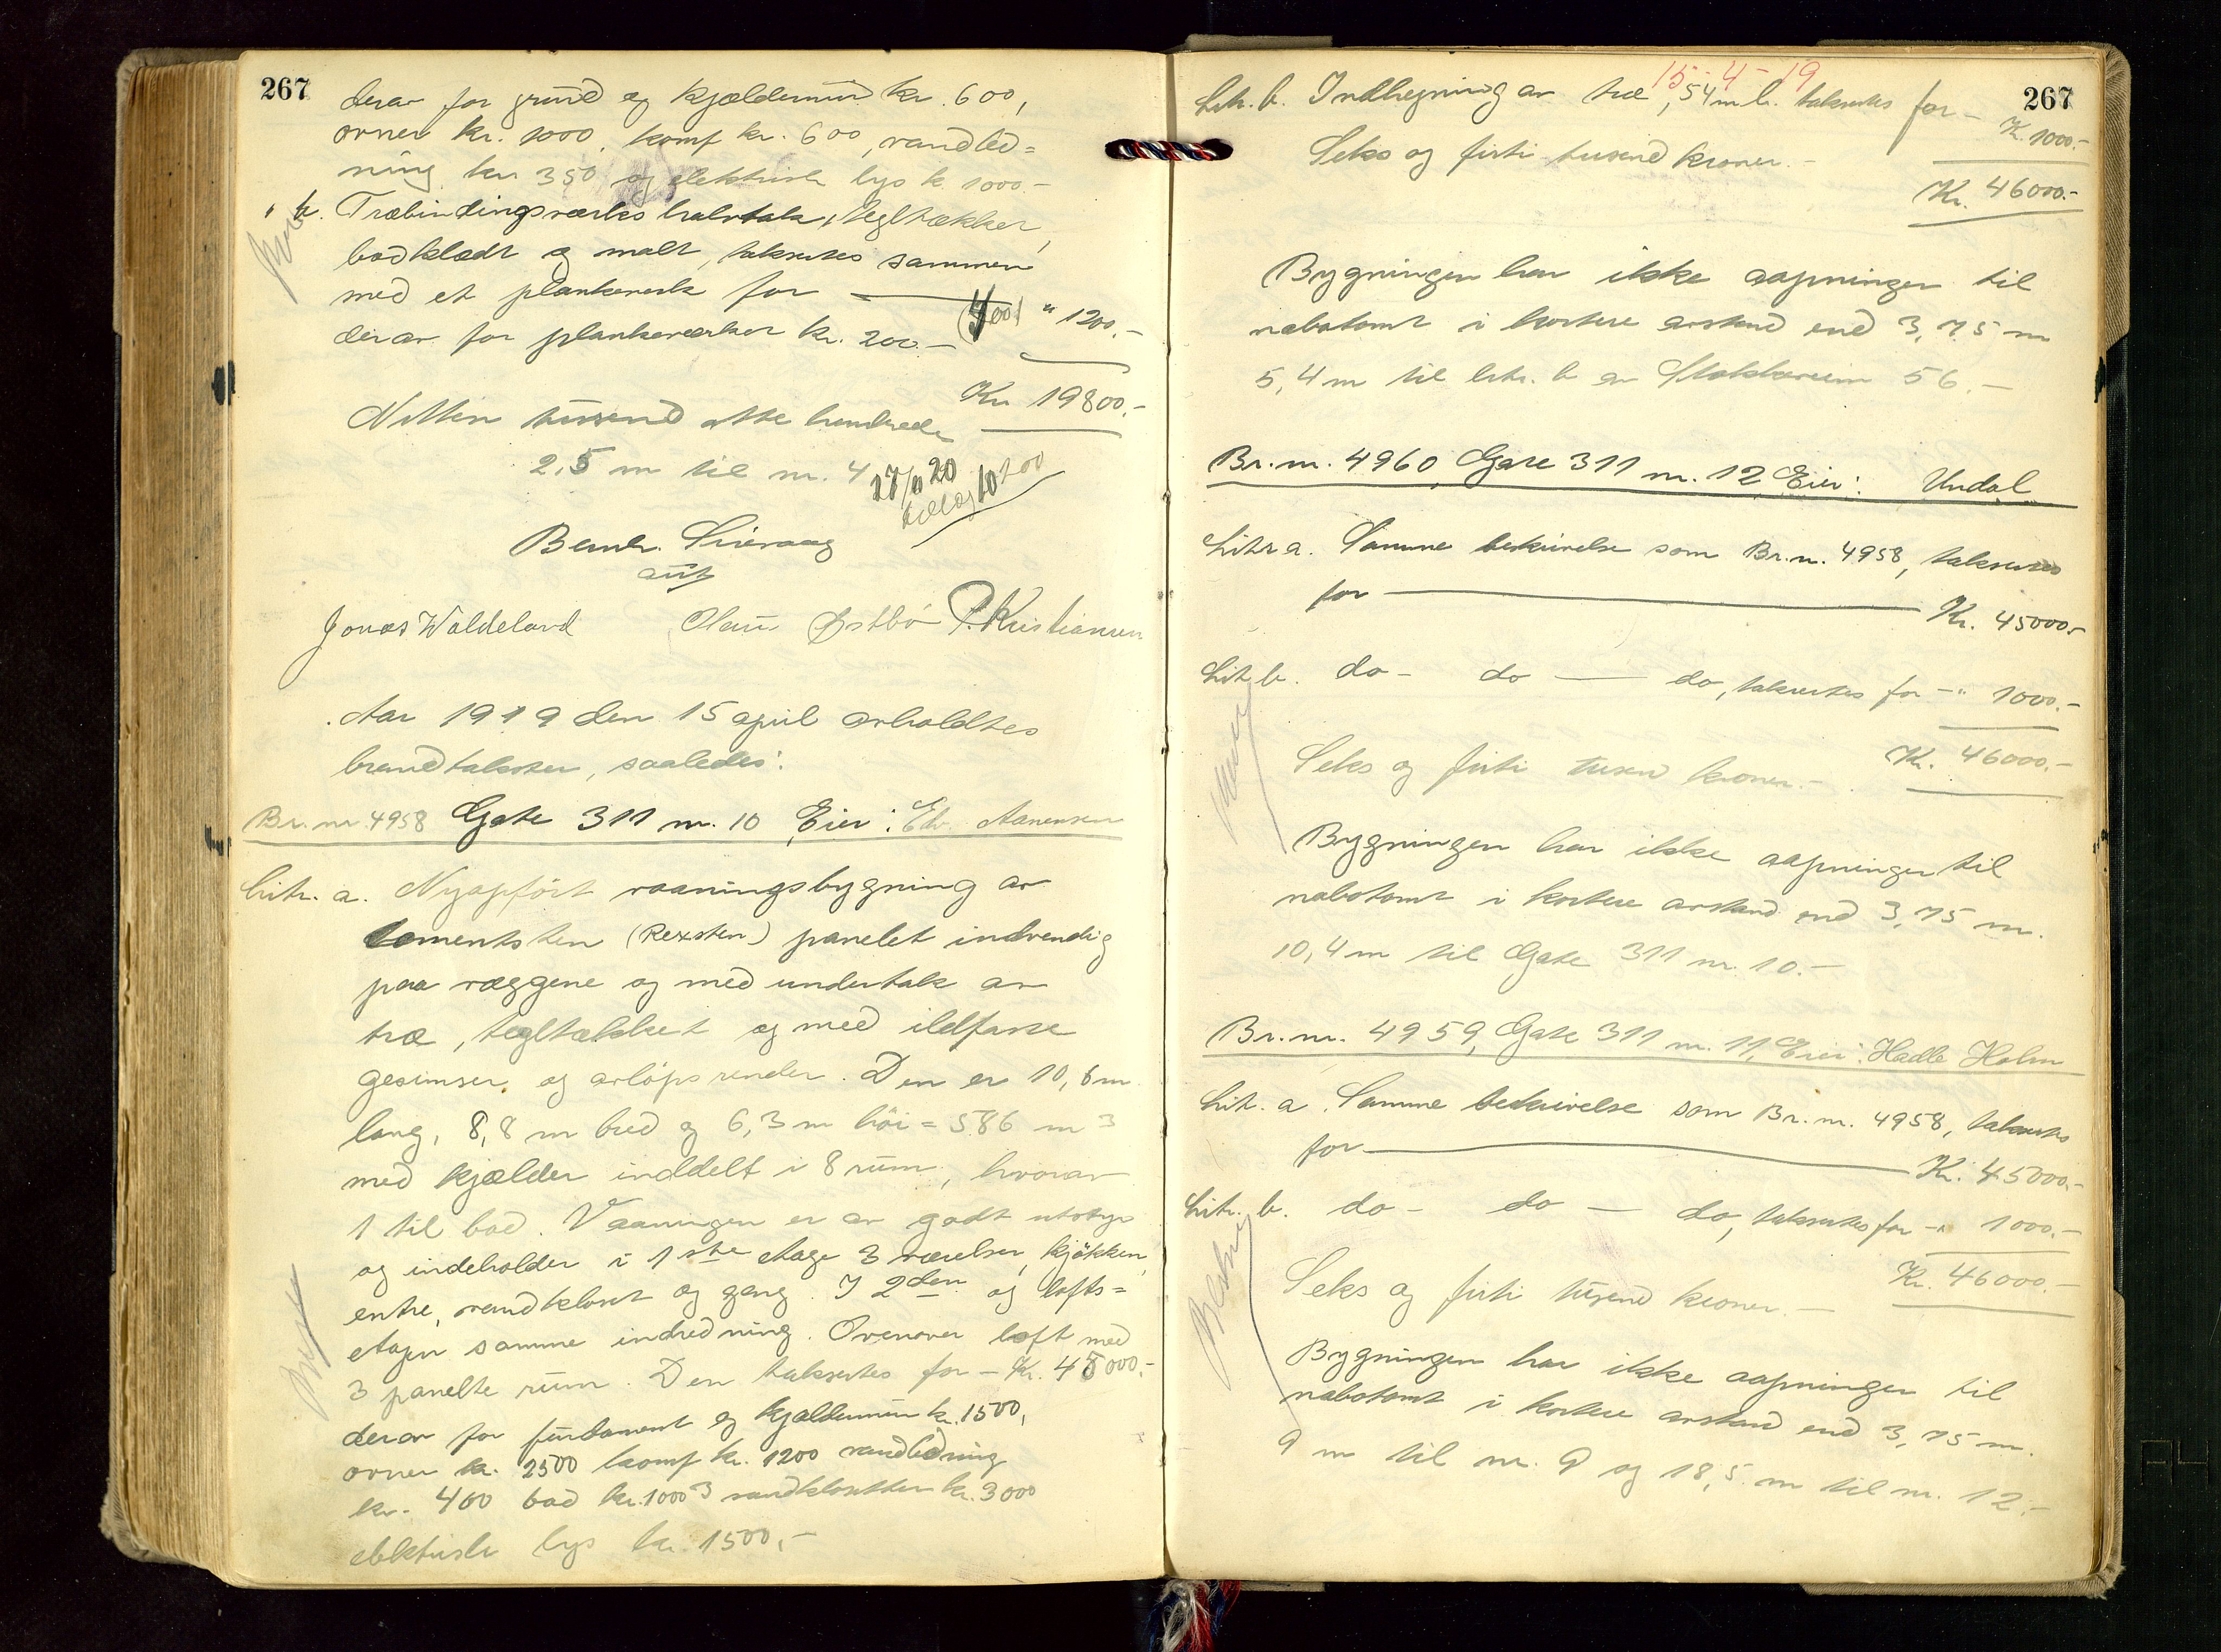 267
derav for grund og kjældermur kr. 600,
ovner kr. 1000, komf kr. 600, vandled=
ning kr. 350 og elektrisk lys kr. 1000.-
" b. Træbindingsverks halvtak, tegltækket,
bordklædt og malt, taksertes sammen
med et plankeverk for — " 1200.-
derav for plankeverket kr. 200.-
Kr 19800.-
Nitten tusend otte hundrede
2,5 m til nr. 4
17/11 20
tillæg 10 200
Bernh. Sivraag
aut
Jonas Waldeland Olaus Østbö P. Kristiansen
Aar 1919 den 15 april avholdtes
brandtakster, saaledes:
Br. nr. 4958 Gate 311 nr. 10 Eier: Edv. Aanensen
Litr. a. Nyopført vaaningsbygning av
cementsten (Rexsten) panelet indvendig
paa væggene og med undertak av
træ, tegltækket og med ildfaste
gesimser og avløpsrender. Den er 10,6 m
lang, 8,8 m bred og 6,3 m höi = 586 m3
med kjælder inddelt i 8 rum, hvorav
1 til bad. Vaaningen er av godt utstyr
og indeholder i 1ste etage 3 værelser, kjøkken,
entre, vandkloset og gang. I 2den og lofts=
etagen samme indredning. Ovenover loft med
3 panelte rum. Den taksertes for - Kr. 45000.-
derav for fundament og kjældermur kr. 1500,
ovner kr. 2500 komf kr. 1200 vandledning
kr. 400 bad kr. 1000 3 vandklosetter kr. 3000
elektrisk lys kr. 1500,-
15-4-19
267
Litr. b. Indhegning av træ, 54 m l. taksertes for - Kr. 1000.-
Seks og firti tusend kroner.- Kr. 46000.-
Bygningen har ikke aapninger til
nabotomt i kortere avstand end 3,75 m
5,4 m til litr. b av Stokkaveien 56.-
Br. nr. 4960, Gate 311 nr. 12, Eier: Undal
Litr a. Samme beskrivelse som Br. nr. 4958, taksertes
for — Kr. 45000.-
Lit b. do - do — do, taksertes for - " 1000.-
Seks og firti tusend kroner.- Kr. 46000.-
Bygningen har ikke aapninger til
nabotomt i kortere avstand end 3,75 m.
10,4 m til Gate 311 nr. 10.-
Br. nr. 4959, Gate 311 nr. 11, Eier: Hadle Holm
Litr. a. Samme beskrivelse som Br. nr. 4958, taksertes
for — Kr. 45000.-
Litr. b. do - do — do, taksertes for - " 1000.-
Seks og firti tusend kroner.- Kr. 46000.-
Bygningen har ikke aapninger til
nabotomt i kortere avstand end 3,75 m.
9 m til nr. 9 og 18,5 m til nr. 12.-